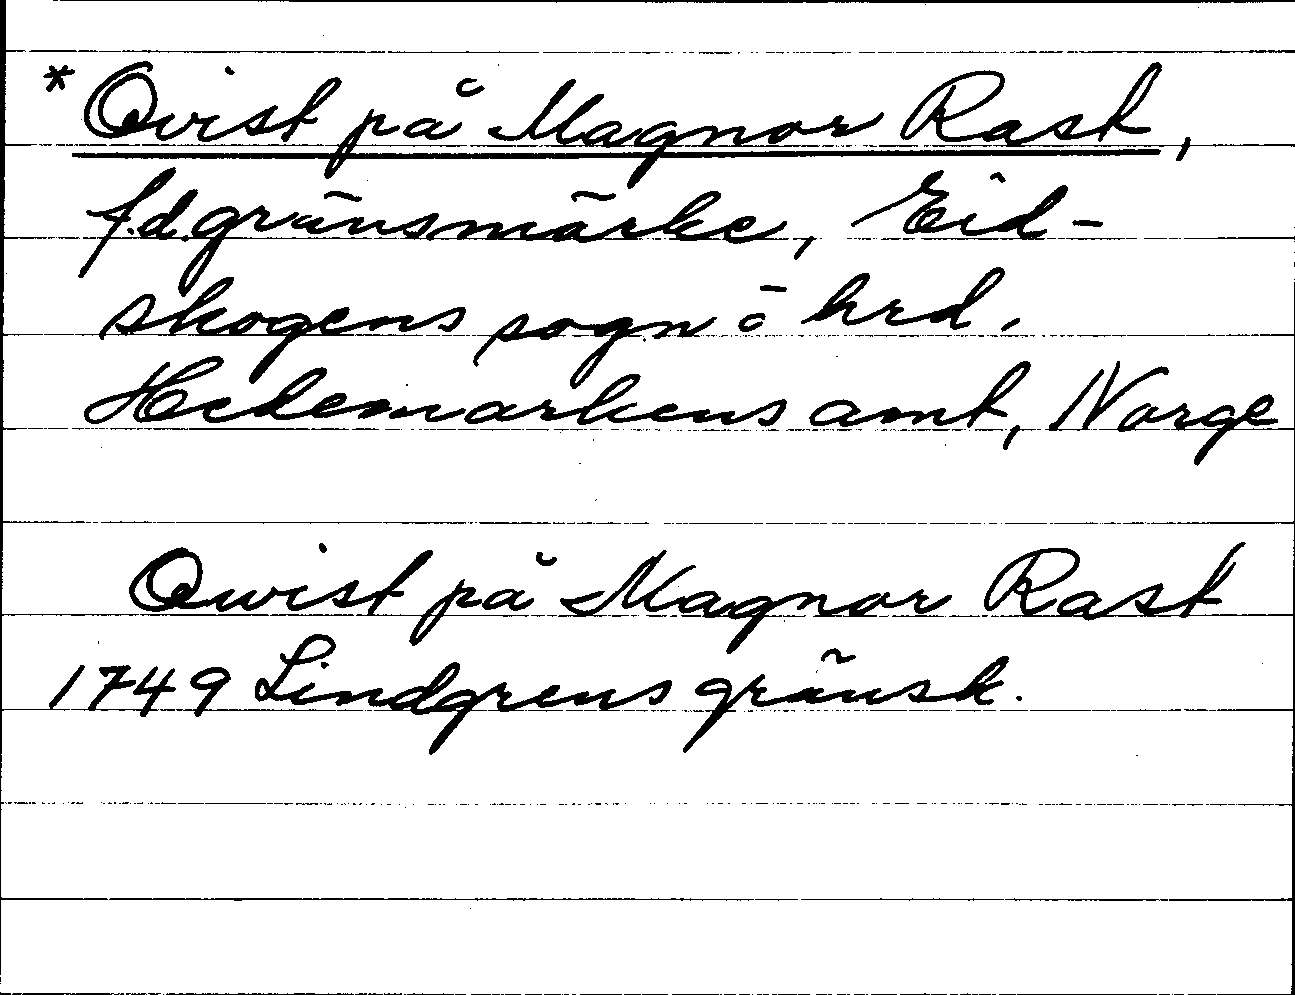 *Qvist på Magnor Rast,
f.d. gränsmärke, Eid-
skogens sogn o hrd.
Hedemarkens amt, Norge
Qwist på Magnor Rast
1749 Lindgrens gränsk.